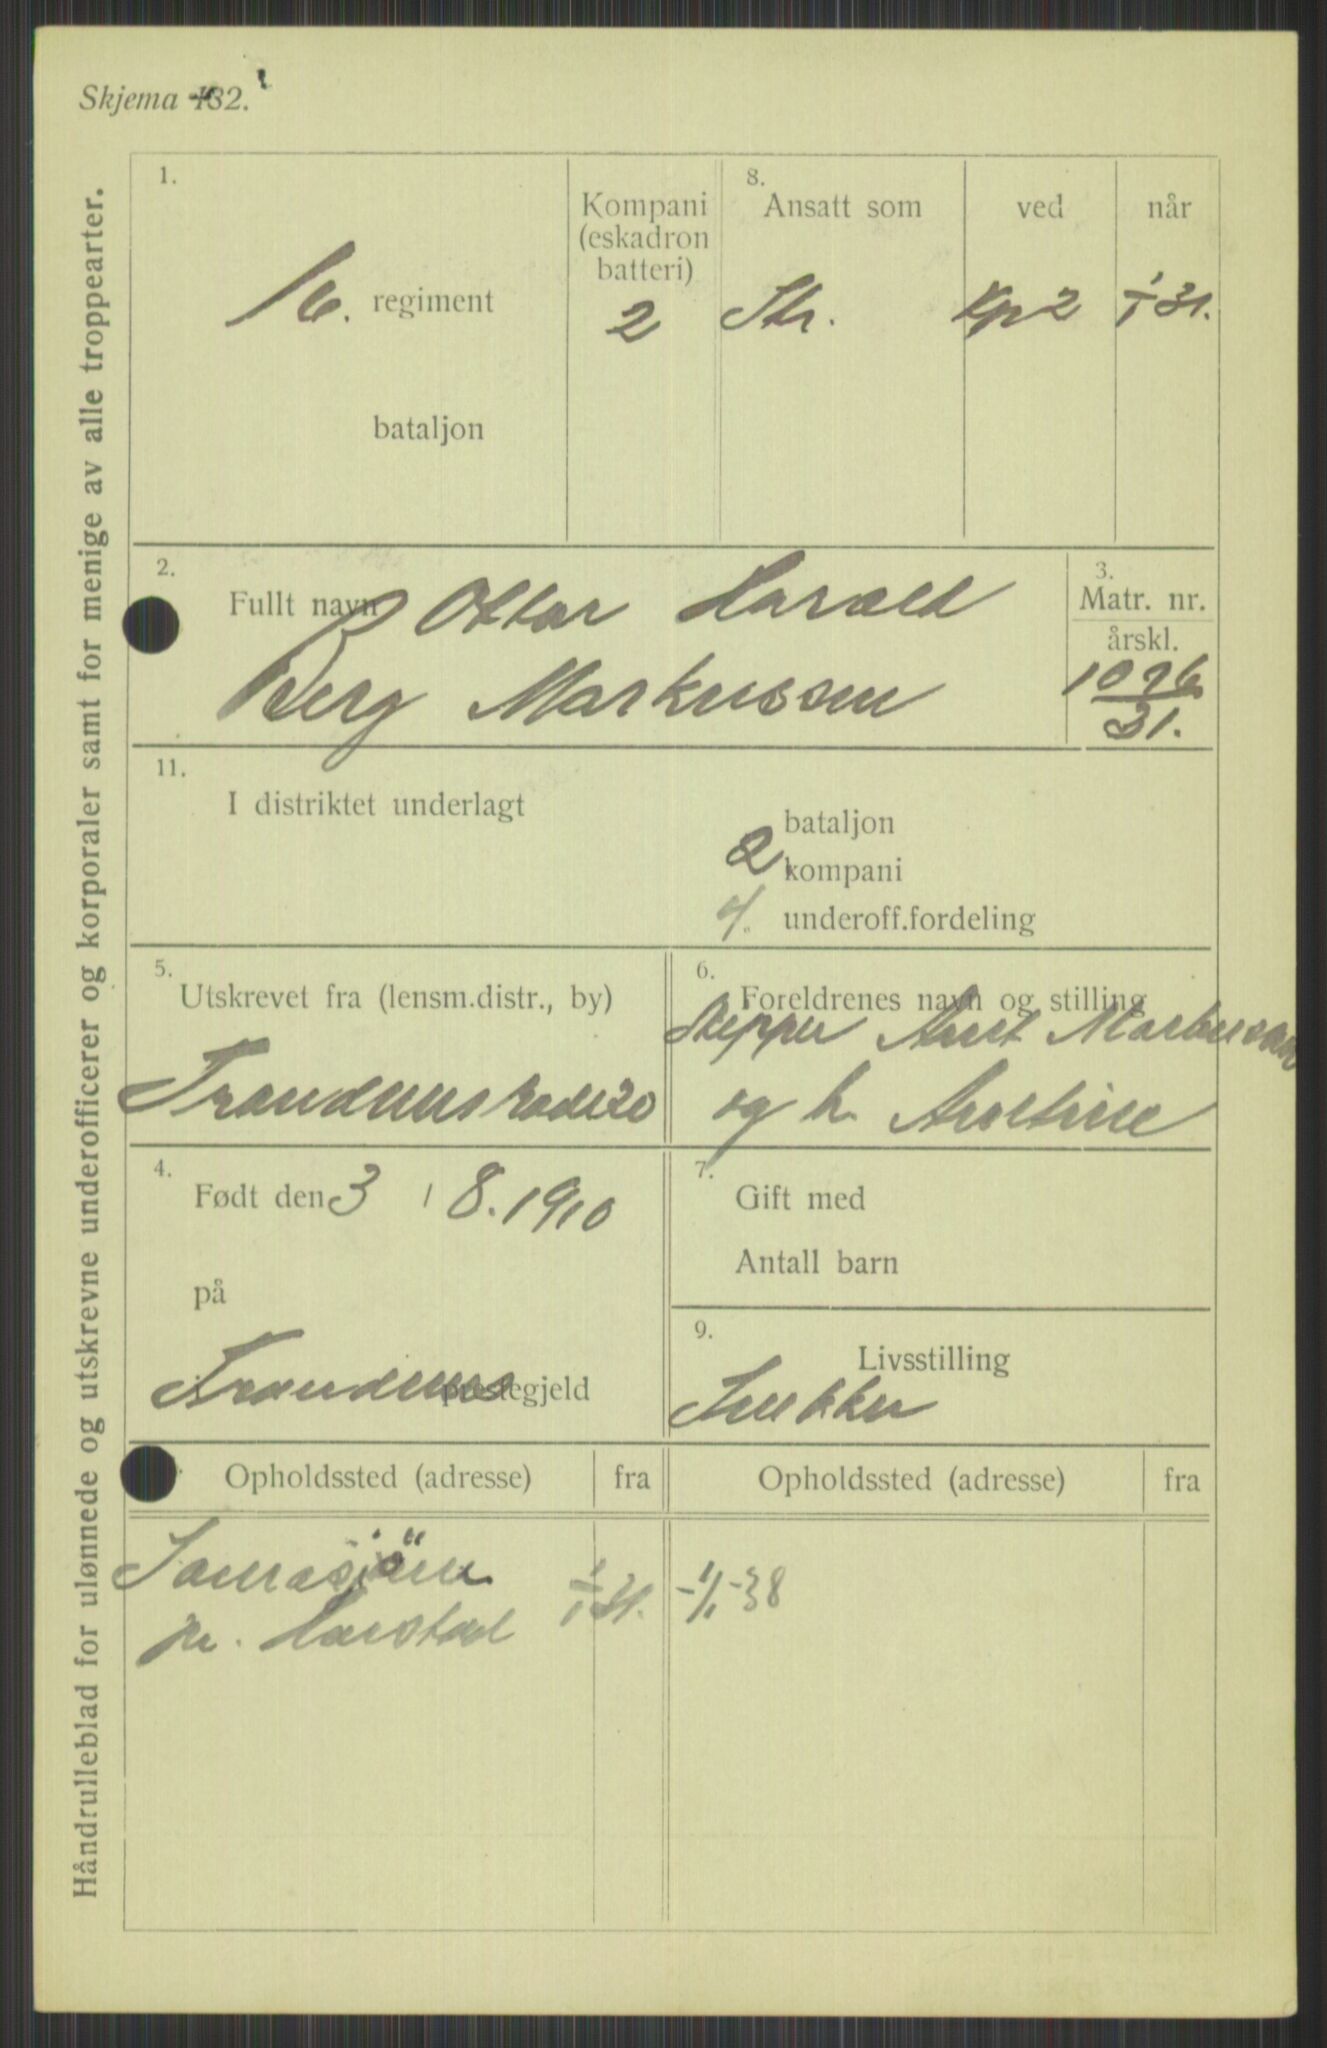 Skjema 132.
Håndrulleblad for ulønnede og utskrevne underofficerer og korporaler samt for menige av alle troppearter.
1.
16. regiment
bataljon
Kompani
(eskadron
batteri)
2
8.
Ansatt som
ved
når
Str.
Kp 2
1/1 31.
2.
Fullt navn Ottar Harald
Berg Markussen
3.
Matr. nr.
årskl.
1026
31.
11.
I distriktet underlagt
bataljon
2 kompani
4. underoff.fordeling
5.
Utskrevet fra (lensm.distr., by)
Trondenes
6.
Foreldrenes navn og stilling
Skipper Markussen
og h.
4.
Født den 3 / 8. 1910
på
Trondenes
prestegjeld
7.
Gift med
Antall barn
9.
Livsstilling
Snekker
Opholdssted (adresse)
fra
Opholdssted (adresse)
fra
pr. Harstad
1/1 31.
-1/1-38